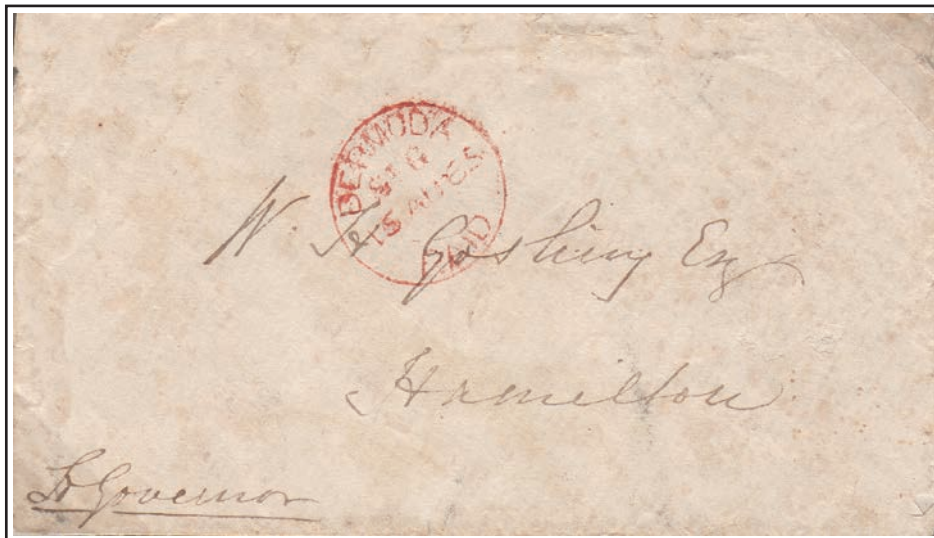 BERMUDA
ST G
15 AU 85
PAID
W. H Gosling Esq
Hamilton
Lt Governor